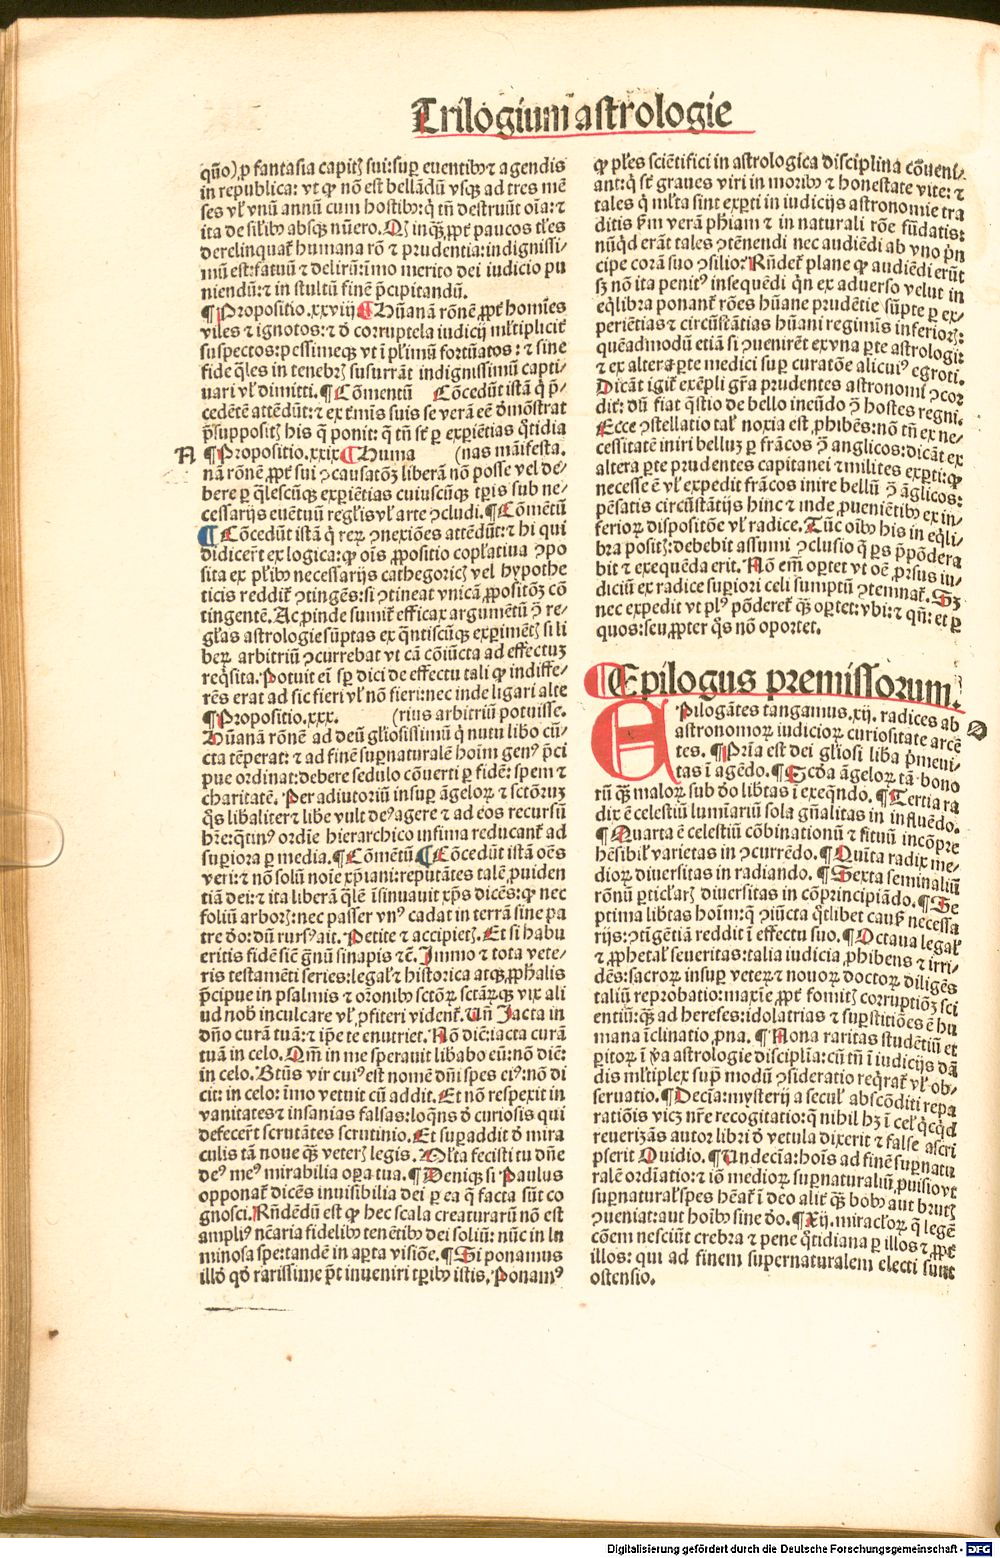 Trilogium astrologie
qño) ꝓ fantasia capitꝫ sui: suꝑ euentibꝰ ⁊ agendis
in republica: vt ꝙ nõ est bellãdũ vsqꝫ ad tres mẽ
ses vł vnũ annũ cum hostibꝰ: q̃ tñ destruũt oĩa: ⁊
ita de siłibꝰ absqꝫ nũero. Qꝫ inqꝫ ꝓpt̃ paucos tles
derelinquat̃ humana rõ ⁊ prudentia: indignissi/
mũ est: fatuũ ⁊ delirũ: imo merito dei iudicio pu
niendũ: ⁊ in stultũ finẽ p̃cipitandũ.
¶Propositio.xxviij ¶Hũanã rõnẽ ꝓpt̃ homĩes
viles ⁊ ignotos: ⁊ ð corruptela iudicij mɫtiplicit̃
suspectos: pessimeqꝫ vt i pɫimũ fortũatos: ⁊ sine
fide q̃les in tenebrꝫ susurrãt indignissimũ capti/
uari vł dimitti. ¶Cõmentũ Cõcedũt istã q̃ p̃/
cedẽtẽ attẽdũt: ⁊ ex tẽmis suis se verã eẽ ðmõstrat
p̃supposit̃ his q̃ ponit: q̃ tñ sũt ꝑ exꝑiẽtias q̃tidia
A ¶Propositio.xxix ¶Huma (nas mãifesta.
nã rõnẽ ꝓpt̃ sui ↄ̃causatõꝫ liberã nõ posse vel de/
bere ꝑ q̃lescũqꝫ exꝑiẽtias cuiuscũqꝫ tꝑis sub ne/
cessarijs euẽtuũ regɫis vł arte ↄ̃cludi. ¶Cõmẽtũ
¶Cõcedũt istã q̃ reꝝ ↄ̃nexiões attẽdũt: ⁊ hi qui
didicer̃t ex logica: ꝙ oĩs ꝓpositio copɫatiua ↄ̃po
sita ex pɫibꝰ necessarijs cathegoricꝫ vel hypothe
ticis reddit̃ ↄ̃tingẽs: si ↄ̃tineat vnicã ꝓpositõꝫ cõ
tingentẽ. Ac ꝓinde sumit̃ efficax argumẽtũ ↄ̃ re/
gɫas astrologie sũptas ex q̃ntiscũqꝫ exꝑimẽtꝫ si li
beꝝ arbitriũ ↄ̃currebat vt cã cõiũcta ad effectuꝫ
req̃sita. Potuit eĩ sꝑ dici de effectu tali ꝙ indiffe/
rẽs erat ad sic fieri vł nõ fieri: nec inde ligari alte
¶Propositio.xxx. (rius arbitriũ potuisse.
Hũanã rõnẽ ad deũ gɫiosissimũ q̃ nutu libo cũ/
cta tẽperat: ⁊ ad finẽ suꝑnaturalẽ hoĩm genꝰ p̃ci
pue ordinat: debere sedulo cõuerti ꝑ fidẽ: spem ⁊
charitatẽ. Per adiutoriũ insuꝑ ãgeloꝝ ⁊ sctõruꝫ
q̃s libaliter ⁊ libe vult deꝰ agere ⁊ ad eos recursũ
hr̃e: q̃tinꝰ ordĩe hierarchico infima reducant̃ ad
suꝑiora ꝑ media. ¶Cõmẽtũ ¶Cõcedũt istã oẽs
veri: ⁊ nõ solũ noĩe xp̃iani: reputãtes talẽ ꝓuiden
tiã dei: ⁊ ita liberã q̃lẽ ĩsinuauit xp̃s dicẽs: ꝙ nec
foliũ arborꝫ: nec passer vnꝰ cadat in terrã sine pa
tre ðo: dũ rursꝰ ait. Petite ⁊ accipietꝫ. Et si habu
eritis fidẽ siẽ gnũ sinapis ⁊c̃. Immo ⁊ tota vete/
ris testamẽti series: legał ⁊ historica atqꝫ ꝓphalis
p̃cipue in psalmis ⁊ orõnibꝰ sctõꝝ sctãꝝqꝫ vix ali
ud nob̃ inculcare vł ꝓfiteri vident̃. Uñ Jacta in
dño curã tuã: ⁊ ip̃e te enutriet. Nõ diẽ: iacta curã
tuã in celo. Qm̃ in me sperauit libabo eũ: nõ diẽ:
in celo. Btũs vir cuiꝰ est nomẽ dñi spes eiꝰ: nõ di
cit: in celo: ĩmo vetuit cũ addit. Et nõ respexit in
vanitates ⁊ insanias falsas: loq̃ns ð curiosis qui
defecer̃t scrutãtes scrutinio. Et suꝑaddit ð mira
culis tã noue q̃ꝫ veterꝫ legis. Mɫta fecisti tu dñe
deꝰ meꝰ mirabilia oꝑa tua. ¶Deniqꝫ si Paulus
opponat̃ dicẽs inuisibilia dei ꝑ ea q̃ facta sũt co
gnosci. Rñdẽdũ est ꝙ hec scala creaturarũ nõ est
ampliꝰ ncãaria fidelibꝰ tenẽtibꝰ dei soliũ: nũc in lu
minosa spe: tandẽ in aꝑta visiõe. ¶Si ponamus
illð qð rarissime p̃t inueniri tꝑibꝰ istis. Ponamꝰ
ꝙ pɫes sciẽtifici in astrologica disciplina cõueni/
ant: q̃ sũt graues viri in moribꝰ ⁊ honestate vite: ⁊
tales q̃ mɫta sint exꝑti in iudicijs astronomie tra
ditis ẽm verã phiam ⁊ in naturali rõe fũdatis:
nũqd erãt tales ↄ̃tẽnendi nec audiẽdi ab vno prin
cipe corã suo ↄ̃silio? Rñdet̃ plane ꝙ audiẽdi erũt
sꝫ nõ ita penitꝰ insequẽdi qn ex aduerso velut in
eq̃libra ponant̃ rões hũane prudẽtie sũpte ꝑ ex/
periẽtias ⁊ circũstãtias hũani regimĩs inferiorꝫ:
quẽadmodũ etiã si ↄ̃uenirẽt ex vna ꝑte astrologi:
⁊ ex altera ꝑte medici suꝑ curatõe alicuiꝰ egroti.
Dicãt igit̃ exẽpli gr̃a prudentes astronomi ↄ̃cor
dit̃: dũ fiat q̃stio de bello ineũdo ↄ̃ hostes regni.
Ecce ↄ̃stellatio tał noxia est ꝓhibẽs: nõ tñ ex ne/
cessitatẽ iniri belluꝫ ꝑ frãcos ↄ̃ anglicos: dicãt ex
altera ꝑte prudentes capitanei ⁊ milites exꝑti: ꝙ
necesse ẽ vł expedit frãcos inire bellũ ↄ̃ ãglicos:
pẽsatis circũstãtijs hinc ⁊ inde ꝓueniẽtibꝰ ex in/
ferioꝝ dispositõe vł radice. Tũc oĩbꝰ his in eq̃li/
bra positꝫ: debebit assumi ↄ̃clusio q̃ ꝑs p̃põdera
bit ⁊ exequẽda erit. Nõ em̃ oꝑtet vt oẽ ꝓrsus iu/
diciũ ex radice suꝑiori celi sumptũ ↄ̃temnat̃. Sꝫ
nec expedit vt plꝰ põderet̃ q̃ꝫ oꝑtet: vbi: ⁊ qñ: et ꝑ
quos: seu ꝓpter q̃s nõ oportet.
¶Epilogus premissorum.
EPilogãtes tangamus.xij. radices ab D
astronomoꝝ iudicioꝝ curiositate arcẽ
tes. ¶Prĩa est dei gɫiosi liba p̃meui/
tas ĩ agẽdo. ¶Scða ãgeloꝝ tã bono
rũ q̃ꝫ maloꝝ sub ðo libtas ĩ exeq̃ndo. ¶Tertia ra
dix ẽ celestiũ lumĩariũ sola gñalitas in influẽdo.
¶Quarta ẽ celestiũ cõbinationũ ⁊ situũ incõpre
hẽsibił varietas in ↄ̃currẽdo. ¶Quĩta radix me/
dioꝝ diuersitas in radiando. ¶Sexta seminaliũ
rõnũ ꝑticlarꝫ diuersitas in cõprincipiãdo. ¶Se
ptima libtas hoĩm: q̃ ↄ̃iũcta q̃tlibet causꝫ necessa
rijs: ↄ̃tĩgẽtiã reddit ĩ effectu suo. ¶Octaua legał
⁊ ꝓphetał seueritas: talia iudicia ꝓhibens ⁊ irri/
dẽs: sacroꝝ insuꝑ veteꝝ ⁊ nouoꝝ doctoꝝ diligẽs
taliũ reprobatio: maxĩe ꝓpt̃ fomitꝫ corruptiõꝫ sci
entiũ: q̃ꝫ ad hereses: idolatrias ⁊ suꝑstitiões ẽ hu
mana ĩclinatio ꝓna. ¶Nona raritas studẽtiũ et
ꝑitoꝝ ĩ ṽa astrologie disciplĩa: cũ tñ ĩ iudicijs dã
dis mɫtiplex supͬ modũ ↄ̃sideratio req̃rat̃ vł ob/
seruatio. ¶Decĩa: mysterij a secuł abscõditi repa
ratiõis vicꝫ nr̃e recogitatio: q̃ nihil hꝫ ĩ ceł q̃cqd
reuerizãs autor libri ð vetula dixerit ⁊ false ascri
pserit Ouidio. ¶Undecĩa: hoĩs ad finẽ suꝑnatu
ralẽ ordĩatio: ⁊ iõ medioꝝ suꝑnaturaliũ, puisiovt
suꝑnaturał spes hẽat̃ ĩ deo alit̃ q̃ꝫ bobꝰ aut brutꝫ
ↄ̃ueniat: aut hoĩbꝰ sine ðo. ¶Xij. miracɫoꝝ q̃ legẽ
cõem nesciũt crebra ⁊ pene q̃tidiana ꝑ illos ⁊ ꝓpt̃
illos: qui ad finem supernaturalem electi sunt
ostensio.
Digitalisierung gefördert durch die Deutsche Forschungsgemeinschaft - DFG